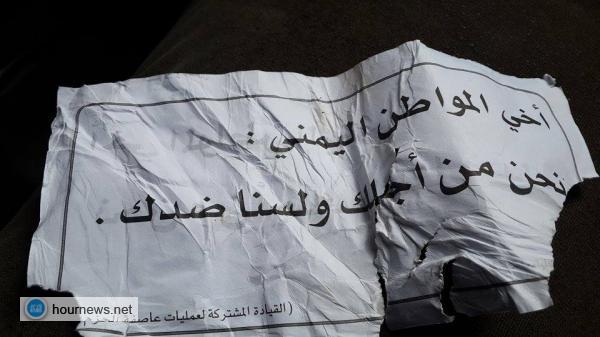 أخي المواطن اليمني :
نحن من أجلك ولسنا ضدك .
( القيادة المشتركة لعمليات عاصفة الحزم
hournews.net